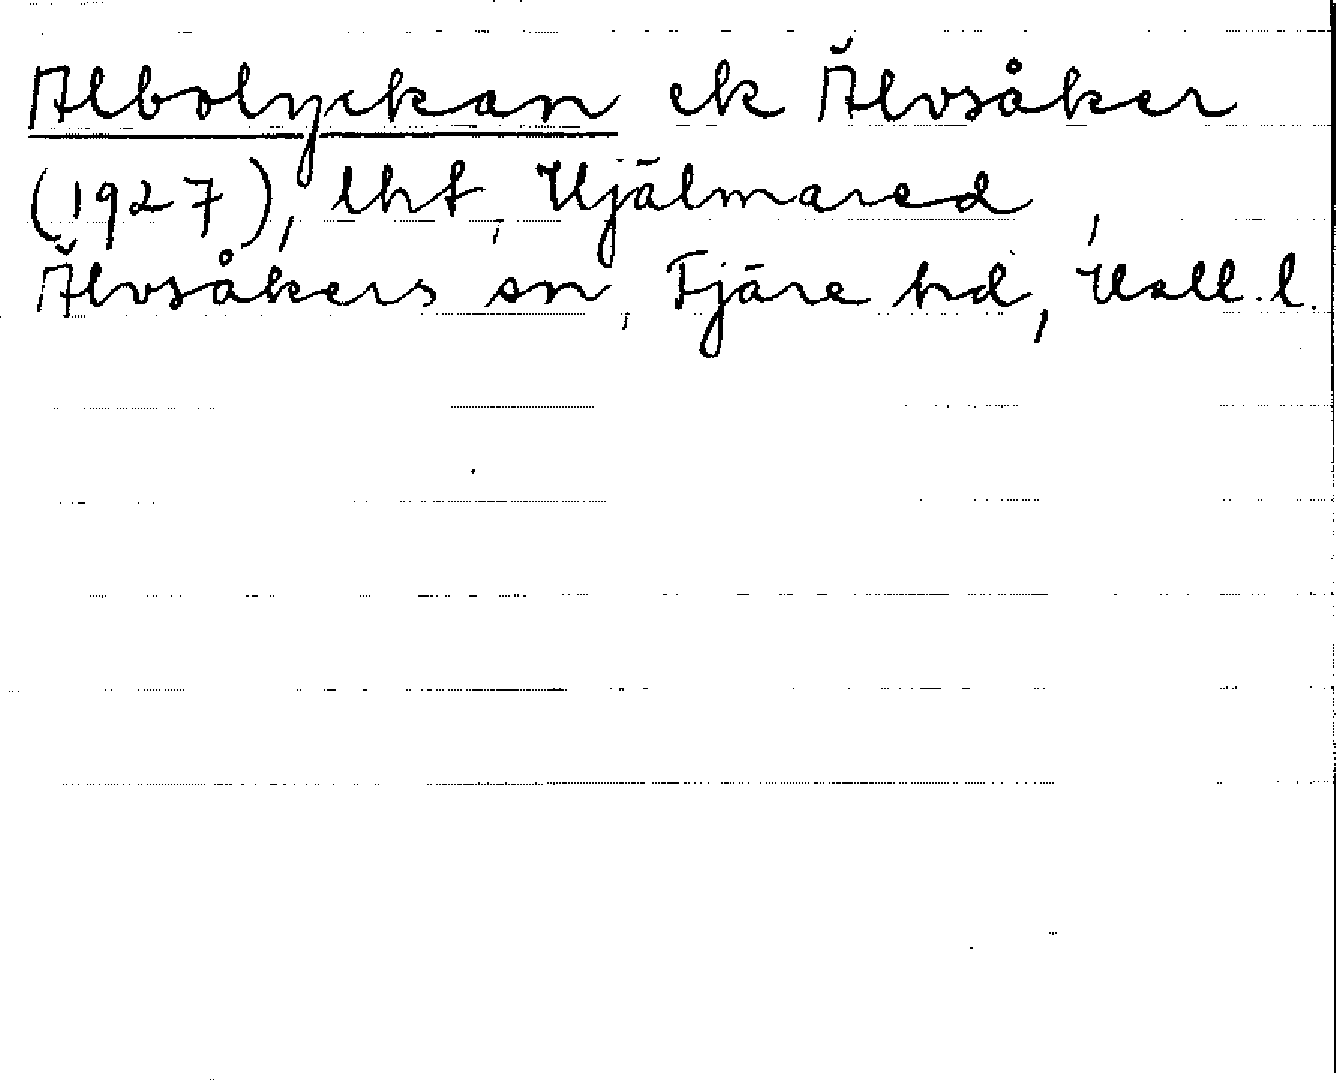 Albolyckan ek Älvsåker
(1927), lht, Hjälmared,
Älvsåkers sn, Fjäre hd, Hall. l.